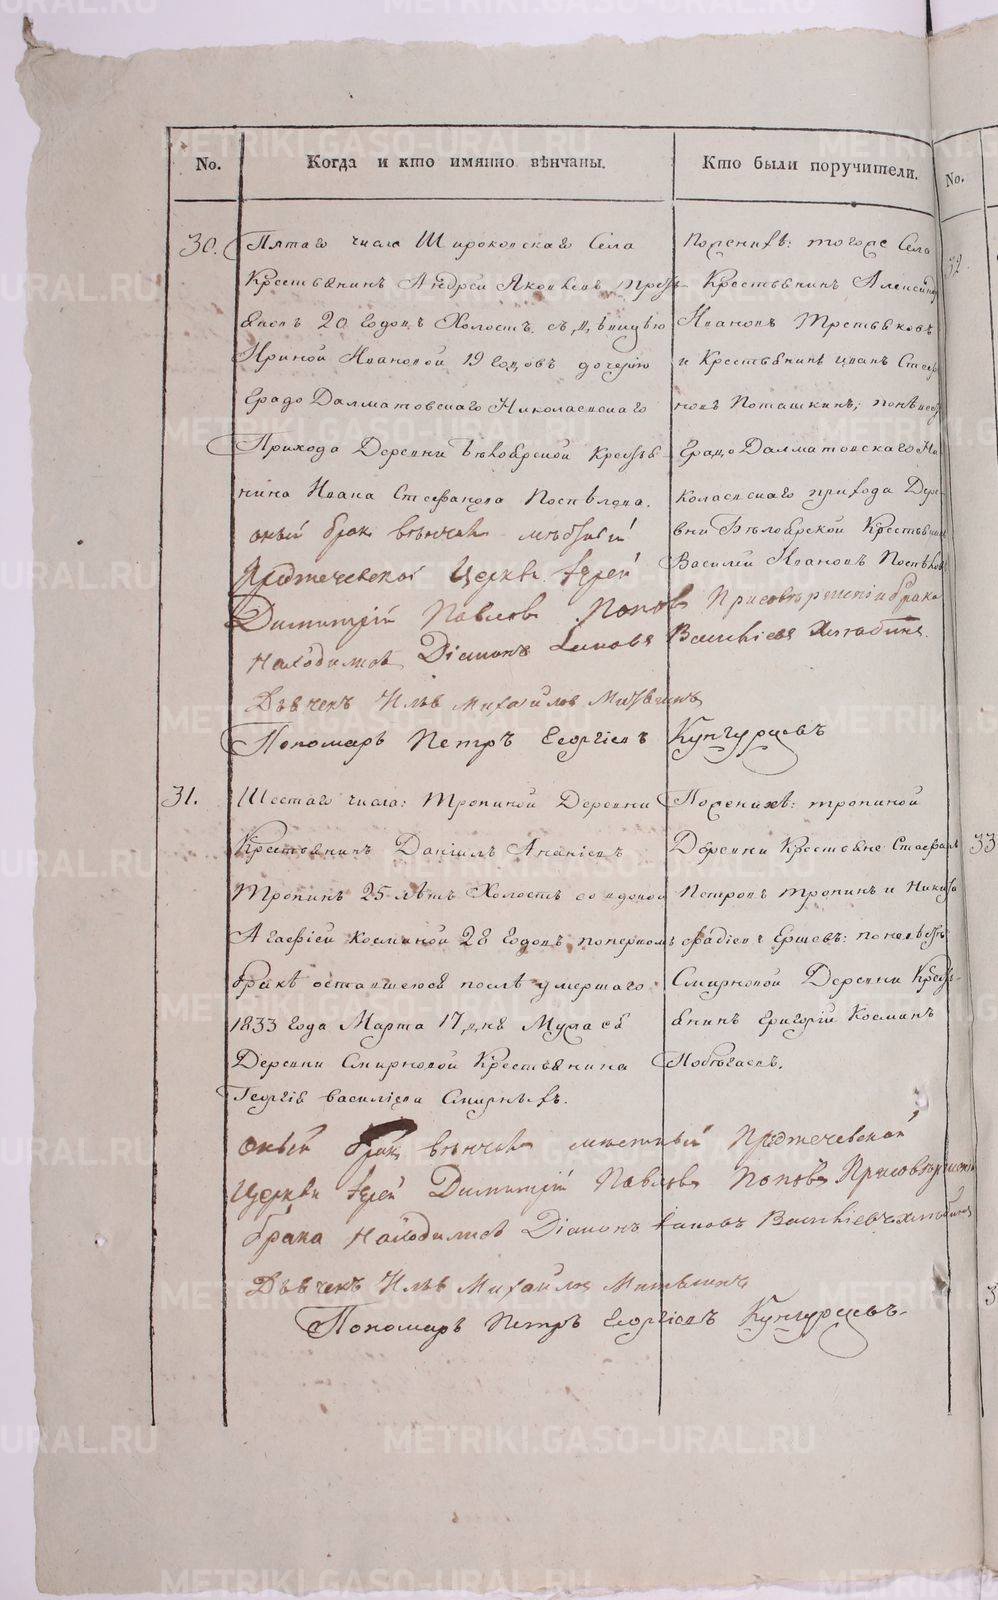 No.
Когда и кто имянно вѣнчаны.
Кто были поручители.
No.
30.
Пятаго числа Широковскаго Села
Крестьянинъ Андрей Яковлевъ
20 годовъ Холостъ, съ дѣвицъю
Ириной Ивановой 19 годовъ дочерью
Градо Далматовскаго Николаевскаго
Прихода Деревни Бѣлобрской Кресть
нина Ивана Стефанова Поспѣлова.
оный бракъ вѣнчалъ мѣстный
Предтечевской Церкви Іерей
Димитрій Павловъ Поповъ При совѣршеніи брака
находились Діаконъ Васильевъ
Дьячекъ Илья Михайловъ
Пономарь Петръ Георгіевъ Кунгурцевъ
По женихѣ: тогоже Села
Крестьянинъ Александръ
Ивановъ Третьяковъ
и Крестьянинъ Иванъ Стеф
новъ Поташкинъ; по невес
Градо Далматовскаго Ни
колаевскаго прихода Дере
вни Бѣлобрской Крестьянинъ
Василій Ивановъ Поспѣловъ
32
31.
Шестаго числа: Тропиной Деревни
Крестьянинъ Даніилъ Ананіевъ
Тропинъ 25 лѣтъ Холостъ со вдовой
Агафіей Косминой 28 годовъ поперьвомъ
бракѣ оставшеюся послѣ умершаго
1833 года Марта 17 дня Мужа еѣ
Деревни Смирновой Крестьянина
Георгія Васильева Смирныхъ.
оный бракъ вѣнчалъ мѣстный Предтечевской
Церкви Іерей Димитрій Павловъ Поповъ При совѣршеніи
брака находились Діаконъ Васильевъ
Дьячекъ Илья Михайловъ
Пономарь Петръ Георгіевъ Кунгурцевъ
По женихѣ: тропиной
Деревни Крестьяне Стефанъ
Петровъ тропинъ и Никифо
Фадѣевъ Ершовъ: по невѣстѣ
Смирновой Деревни Кресть
янинъ Григорій Косминъ
33
3
METRIKI.GASO-URAL.RU